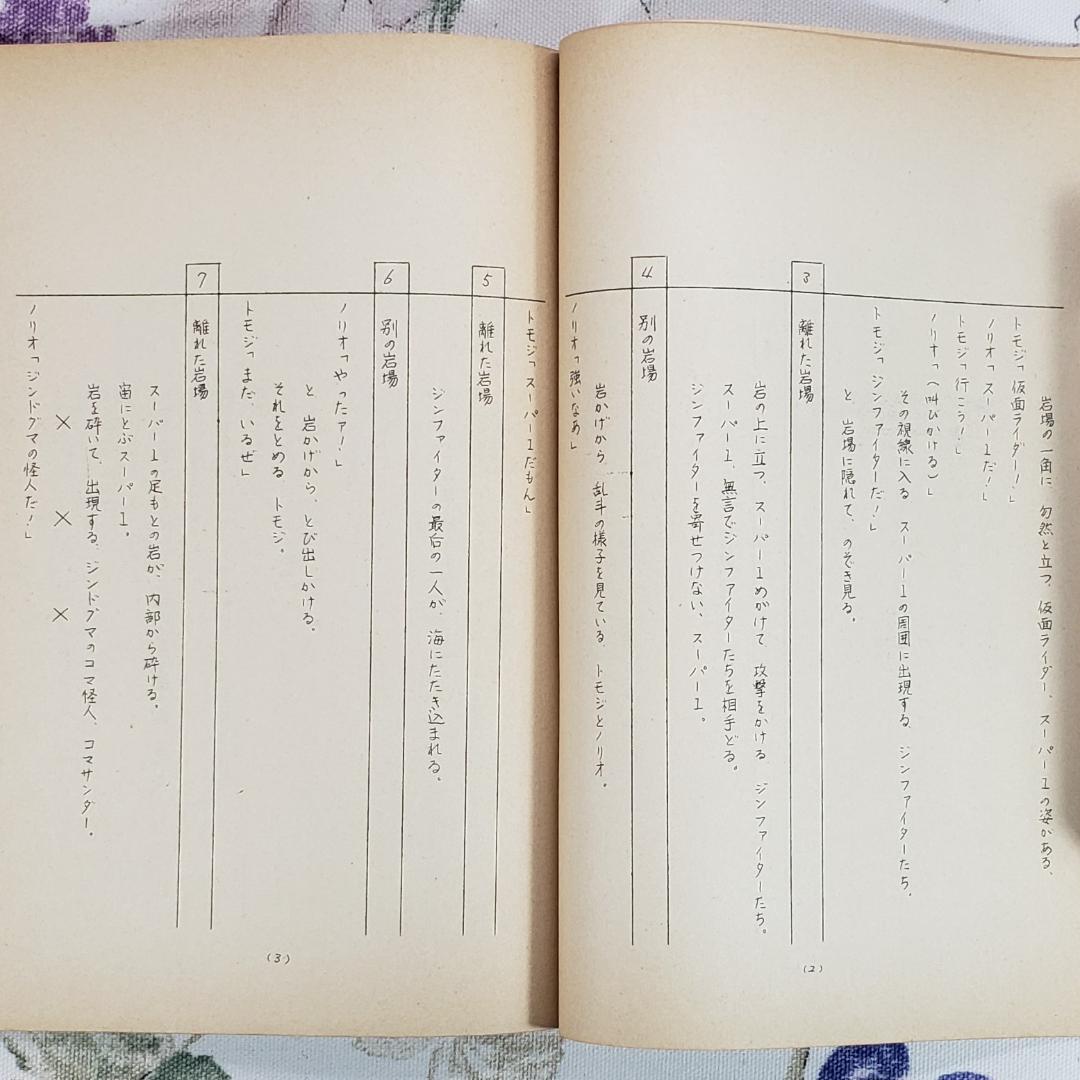 岩場の一角に、勿然と立つ、仮面ライダー、スーパー1の姿がある、
トモジ「仮面ライダー！」
ノリオ「スーパー1だ！」
トモジ「行こう！」
ノリオ「（叫びかける）」
その視線に入る スーパー1の周囲に出現する、ジンファイターたち、
トモジ「ジンファイターだ！」
と 岩場に隠れて、のぞき見る。
3 離れた岩場
岩の上に立つ、スーパー1めがけて 攻撃をかける ジンファイターたち。
スーパー1、無言でジンファイターたちを相手どる。
ジンファイターを寄せつけない、スーパー1。
4 別の岩場
岩かげから、乱斗の様子を見ている、トモジとノリオ。
ノリオ「強いなあ」
(2)
トモジ「スーパー1だもん」
5 離れた岩場
ジンファイターの最后の一人が、海にたたき込まれる。
6 別の岩場
ノリオ「やったァ！」
と 岩かげから、とび出しかける。
それをとめる トモジ。
トモジ「まだ、いるぜ」
7 離れた岩場
スーパー1の足もとの岩が、内部から砕ける。
宙にとぶスーパー1。
岩を砕いて、出現する、ジンドグマのコマ怪人、コマサンダー。
× × ×
ノリオ「ジンドグマの怪人だ！」
(3)